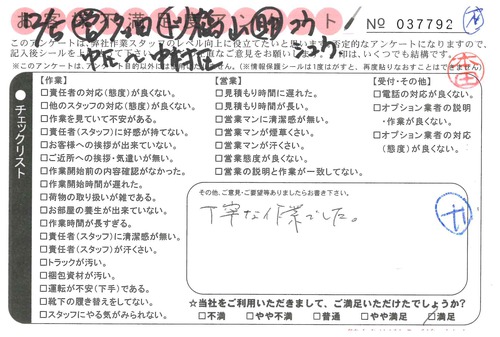 № 037792
このアンケートは、弊社作業スタッフのレベル向上に役立てたいと思います。否定的なアンケートになりますので、
※このアンケートは、目的以外には
(※情報保護シールは1度はがすと、再度貼りなおすことはできません)
チェックリスト
【作業】
□責任者の対応(態度)が良くない。
□他のスタッフの対応(態度)が良くない。
□作業を見ていて不安がある。
□責任者(スタッフ)に好感が持てない。
□お客様への挨拶が出来ていない。
□ご近所への挨拶・気遣いが無い。
□作業開始前の内容確認がなかった。
□作業開始時間が遅れた。
□荷物の取り扱いが雑である。
□お部屋の養生が出来ていない。
□作業時間が長すぎる。
□責任者(スタッフ)に清潔感が無い。
□責任者(スタッフ)が汗くさい。
□トラックが汚い。
□梱包資材が汚い。
□運転が不安(下手)である。
□靴下の履き替えをしてない。
□スタッフにやる気がみられない。
【営業】
□見積もり時間に遅れた。
□見積もり時間が長い。
□営業マンに清潔感が無い。
□営業マンが煙草くさい。
□営業マンが汗くさい。
□営業態度が良くない。
□営業の説明と作業が一致してない。
【受付・その他】
□電話の対応が良くない。
□オプション業者の説明
・作業が良くない。
□オプション業者の対応
(態度)が良くない。
その他、ご意見・ご要望等ありましたらお書き下さい。
丁寧な作業でした。
☆当社をご利用いただきまして、ご満足いただけたでしょうか?
□不満 □やや不満 □普通 □やや満足 ☑満足